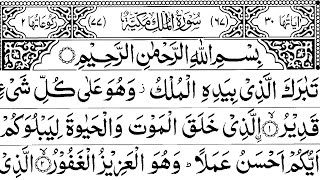 اٰيَاتُهَا ٣٠ (٦٧) سُوْرَةُ الْمُلْكِ مَكِّيَّةٌ (٧٧) رُكُوْعَاتُهَا ٢
بِسْمِ اللّٰهِ الرَّحْمٰنِ الرَّحِيْمِ
تَبٰرَكَ الَّذِیْ بِیَدِهِ الْمُلْكُ ز وَهُوَ عَلٰی كُلِّ شَیْءٍ
قَدِیْرُ ۙ﴿١﴾ الَّذِیْ خَلَقَ الْمَوْتَ وَالْحَیٰوةَ لِیَبْلُوَكُمْ
اَیُّكُمْ اَحْسَنُ عَمَلًا ؕ وَهُوَ الْعَزِیْزُ الْغَفُوْرُ ۙ﴿٢﴾ الَّذِیْ